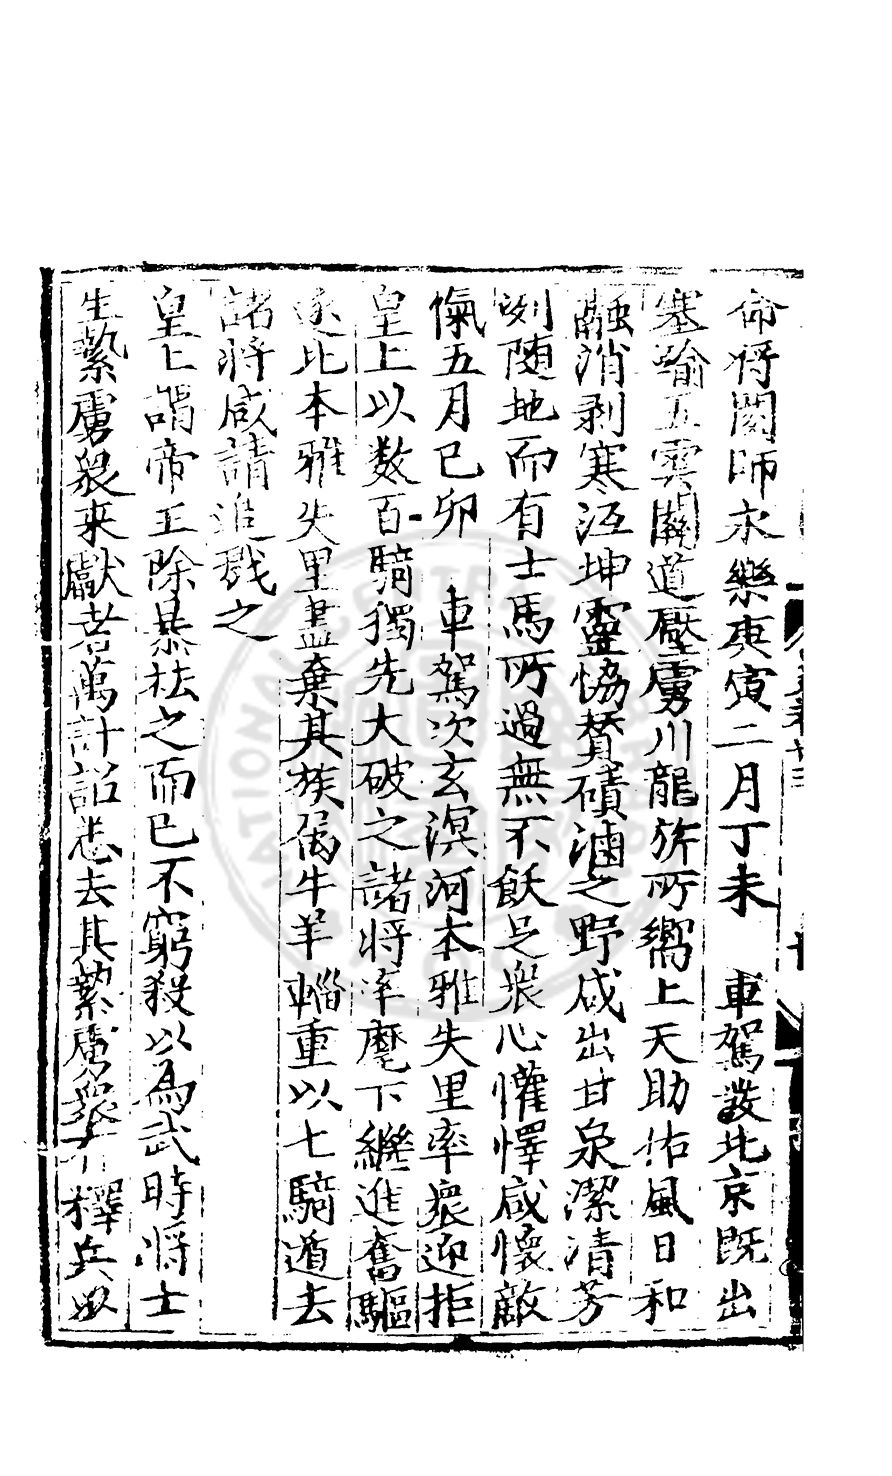 命将閫師永樂庚寅二月丁未　車駕發北京既出
塞踰五雲關道壓虜川龍旂所嚮上天助佑風日和
融消剥寒沍坤靈恊賛磧滷之野咸出甘泉潔清芳
冽随地而有士馬所過無不飫足衆心懽懌咸懷敵
愾五月己卯　車駕次玄溟河本雅失里率衆迎拒
皇上以数百騎獨先大破之諸将率麾下繼進奮驅
逐北本雅失里盡棄其族属牛羊輜重以七騎遁去
諸将咸請追戮之
皇上謂帝王除暴袪之而已不窮殺以為武時将士
生縶虜衆来獻者萬計詔悉去其縶虜衆有釋兵